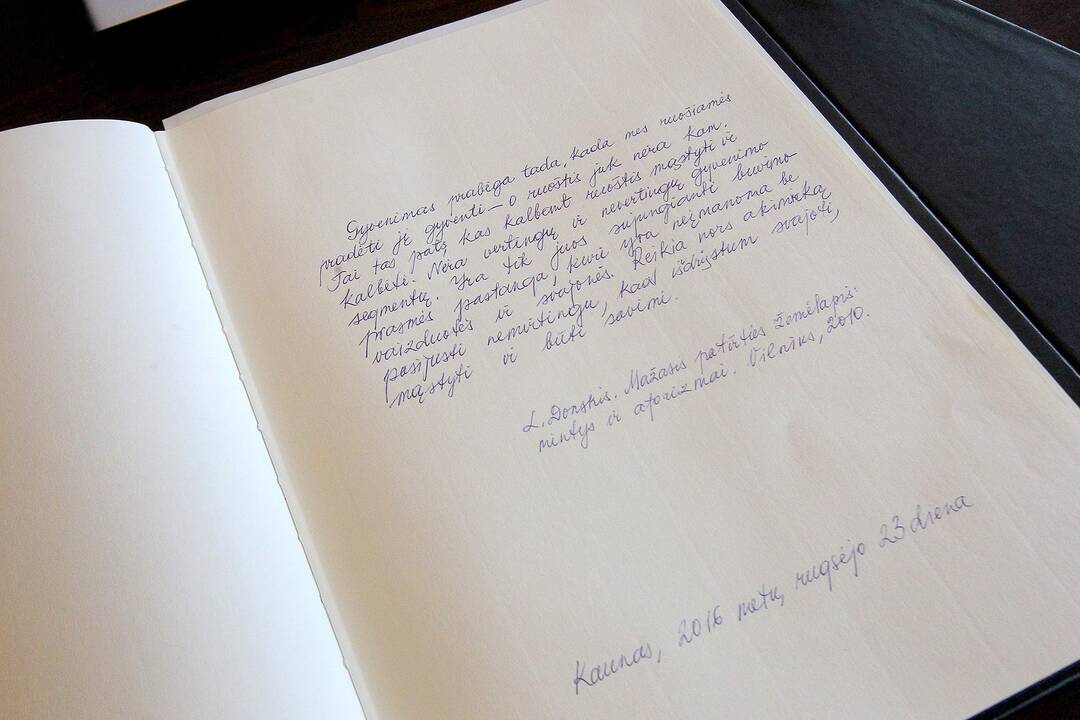 Gyvenimas prabėga tada, kada mes ruošiamės
pradėti jį gyventi – o ruoštis juk nėra kam.
Tai tas patį kas kalbant ruoštis mąstyti ir
kalbėti. Nėra vertingų ir nevertingų gyvenimo
segmentų. Yra tik juos sujungianti buvimo
prasmės pastanga, kuri yra neįmanoma be
vaizduotės ir svajonės. Reikia nors akimirką
pasijusti nemirtingu, kad išdrįstum svajoti,
mąstyti ir būti savimi.
L. Donskis. Mažasis patirties žemėlapis:
mintys ir aforizmai. Vilnius, 2010.
Kaunas, 2016 metų, rugsėjo 23 diena